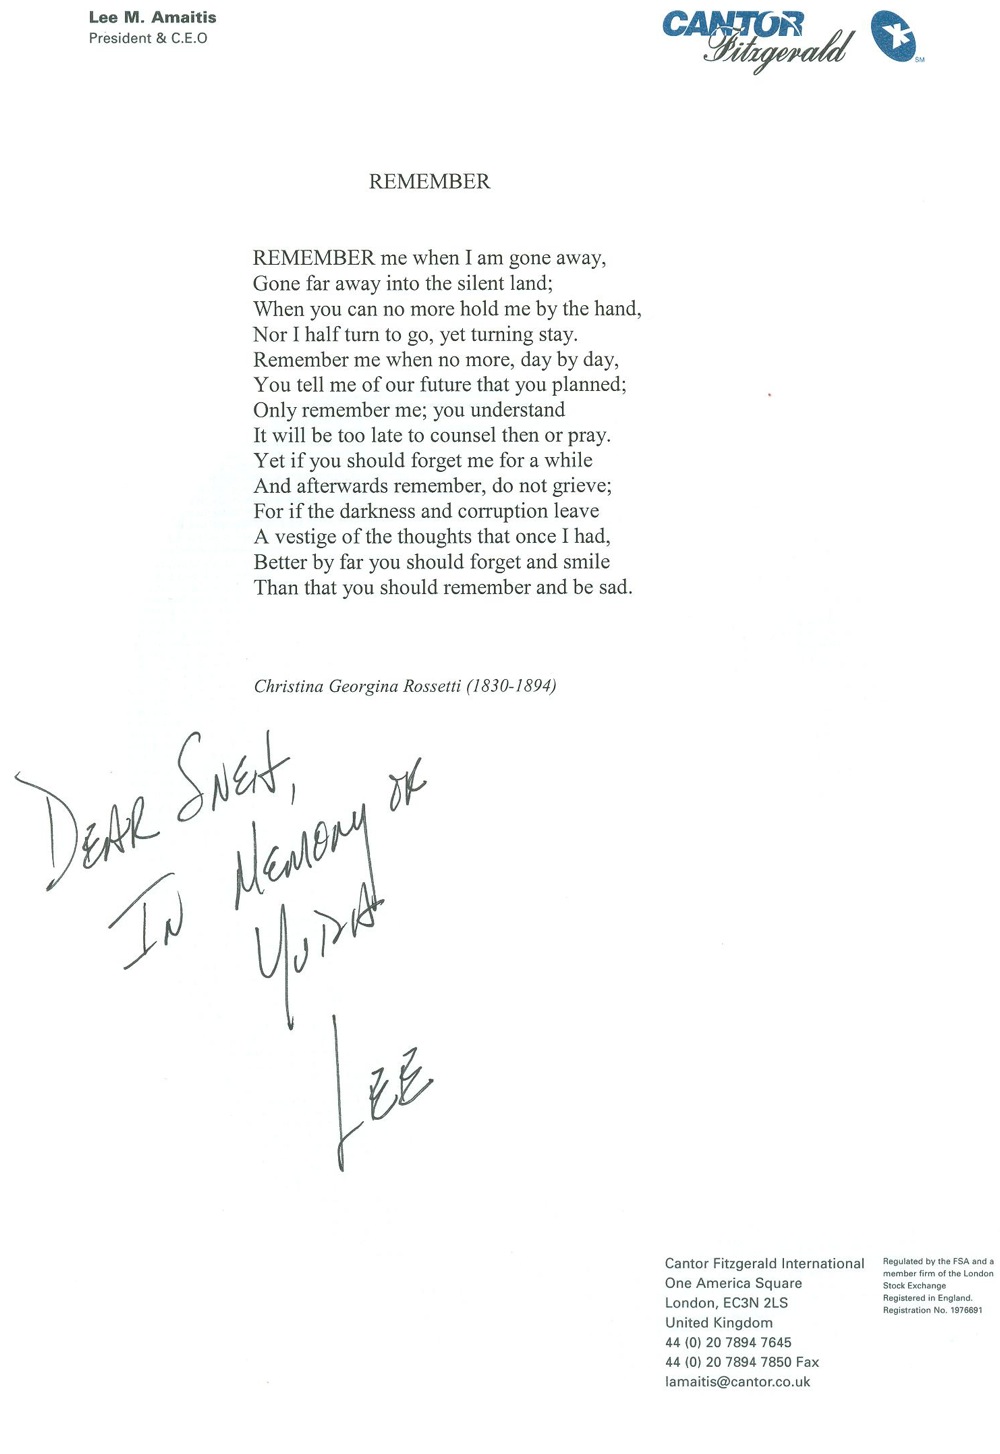 Lee M. Amaitis
President & C.E.O
CANTOR
Fitzgerald
SM
REMEMBER
REMEMBER me when I am gone away,
Gone far away into the silent land;
When you can no more hold me by the hand,
Nor I half turn to go, yet turning stay.
Remember me when no more, day by day,
You tell me of our future that you planned;
Only remember me; you understand
It will be too late to counsel then or pray.
Yet if you should forget me for a while
And afterwards remember, do not grieve;
For if the darkness and corruption leave
A vestige of the thoughts that once I had,
Better by far you should forget and smile
Than that you should remember and be sad.
Christina Georgina Rossetti (1830-1894)
DEAR SNEH,
IN MEMORY OF
YUDH
LEE
Cantor Fitzgerald International
One America Square
London, EC3N 2LS
United Kingdom
44 (0) 20 7894 7645
44 (0) 20 7894 7850 Fax
lamaitis@cantor.co.uk
Regulated by the FSA and a
member firm of the London
Stock Exchange
Registered in England.
Registration No. 1976691